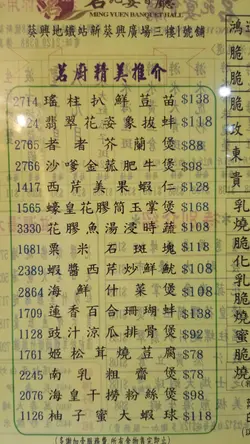 MING YUEN BANQUET HALL
葵興地鐵站新葵興廣場三樓1號舖
茗廚精美推介
2714 瑤柱扒鮮荳苗 $138
24 翡翠花姿象拔蚌 $118
2765 者者芥蘭煲 $88
2766 沙嗲金菇肥牛煲 $98
1417 西芹美果蝦仁 $128
1565 蠔皇花膠筒玉掌煲 $168
3330 花膠魚湯浸時蔬 $108
1681 粟米石斑塊 $118
2389 蝦醬西芹炒鮮魷 $108
2864 海鮮什菜煲 $108
1709 蓮香百合珊瑚蚌 $138
1128 豉汁涼瓜排骨煲 $92
1761 姬松茸燒荳腐 $78
2245 南乳粗齋煲 $78
2076 海皇干撈粉絲煲 $98
1126 柚子蜜大蝦球 $118
鴻
脆
脆
脆
攻
東
貴
乳
燒
脆
化
乳
脆
蜜
脆
燒